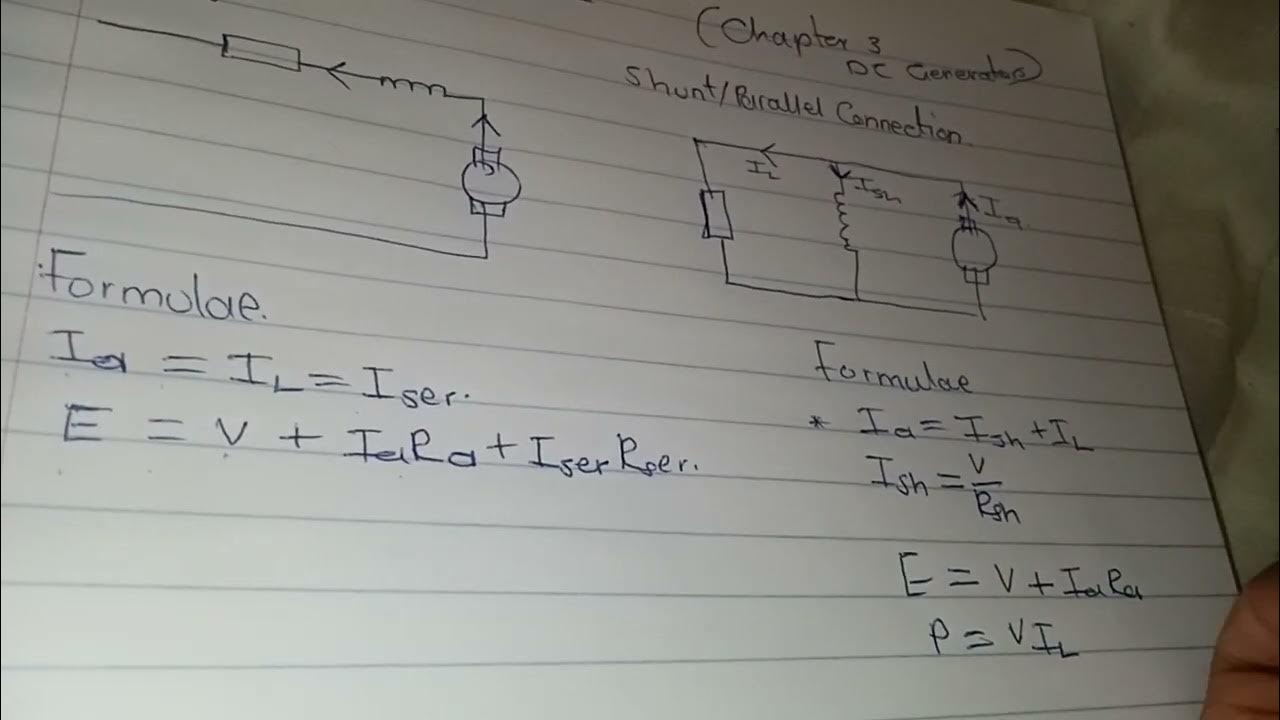 (Chapter 3
DC Generators)
Shunt/Parallel Connection
IL
Ish
Ia
Formulae.
Ia = IL = Iser.
E = V + IaRa + IserRser.
Formulae
* Ia = Ish + IL
Ish = V/Rsh
E = V + IaRa
P = VIL